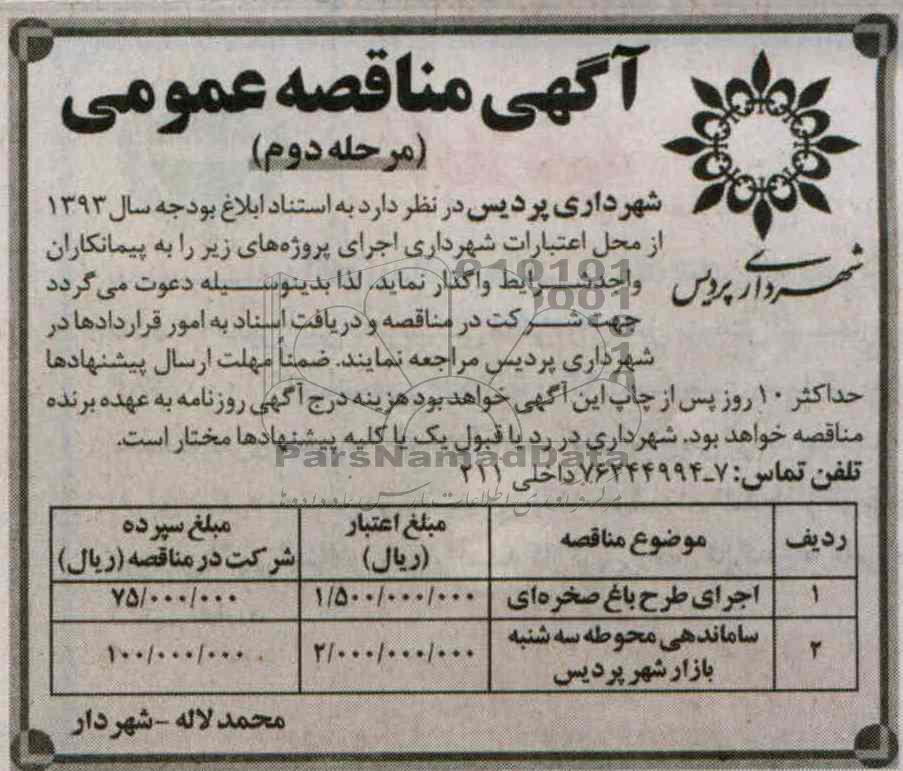 آگهی مناقصه عمومی
(مرحله دوم)
شهرداری پردیس
شهرداری پردیس در نظر دارد به استناد ابلاغ بودجه سال ۱۳۹۳
از محل اعتبارات شهرداری اجرای پروژه‌های زیر را به پیمانکاران
واجد شرایط واگذار نماید، لذا بدینوسیله دعوت می گردد
جهت شرکت در مناقصه و دریافت اسناد به امور قراردادها در
شهرداری پردیس مراجعه نمایند. ضمناً مهلت ارسال پیشنهادها
حداکثر ۱۰ روز پس از چاپ این آگهی خواهد بود هزینه درج آگهی روزنامه به عهده برنده
مناقصه خواهد بود. شهرداری در رد یا قبول یک یا کلیه پیشنهادها مختار است.
تلفن تماس: ۷-۷۶۲۴۴۹۹۴ داخلی ۲۱۱
ParsNamadData
ردیف موضوع مناقصه مبلغ اعتبار (ریال) مبلغ سپرده شرکت در مناقصه (ریال)
۱ اجرای طرح باغ صخره‌ای ۱/۵۰۰/۰۰۰/۰۰۰ ۷۵/۰۰۰/۰۰۰
۲ ساماندهی محوطه سه شنبه بازار شهر پردیس ۲/۰۰۰/۰۰۰/۰۰۰ ۱۰۰/۰۰۰/۰۰۰
محمد لاله - شهردار